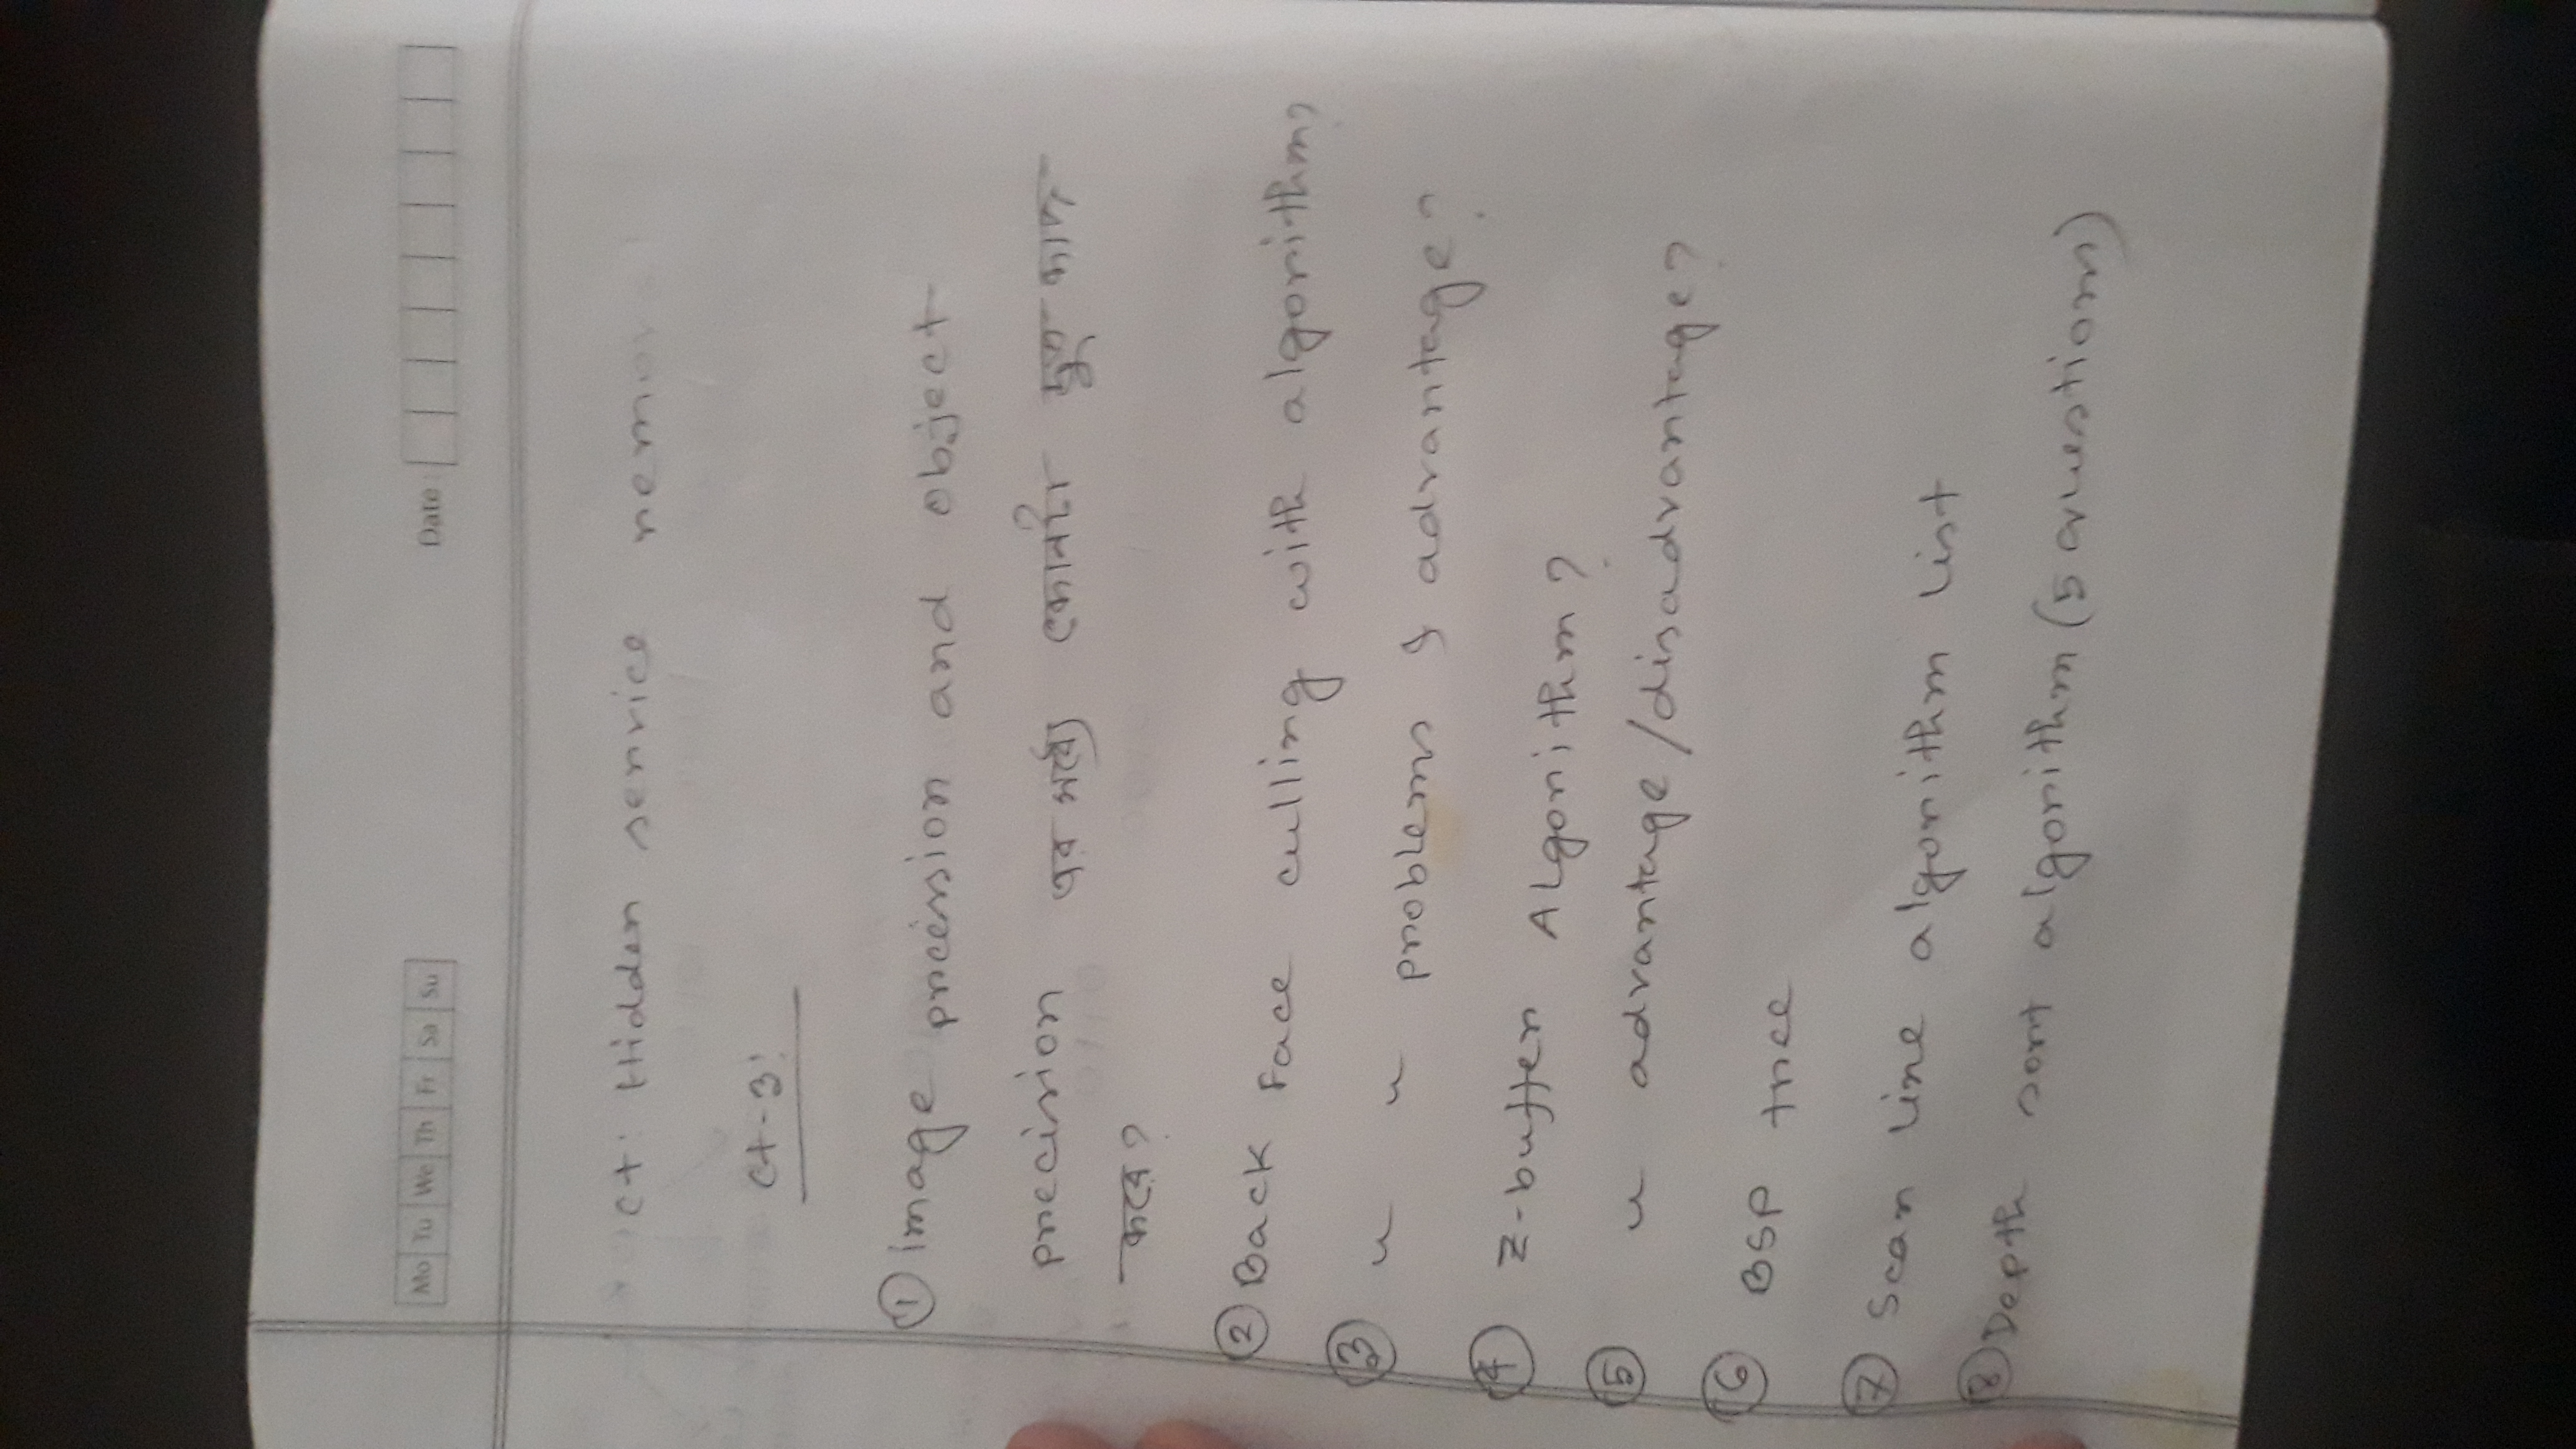 Mo Tu We Th Fr Sa Su Date:
ct: Hidden service remov
ct-3:
① image precission and object
precision এর মধ্যে কোনটা দ্রুত কাজ
করে?
② Back Face culling with algorithm?
③ " " problems & advantage?
④ Z-buffer Algorithm?
⑤ " advantage/disadvantage?
⑥ BSP tree
⑦ Scan line algorithm list
⑧ Depth sort algorithm (5 questions)